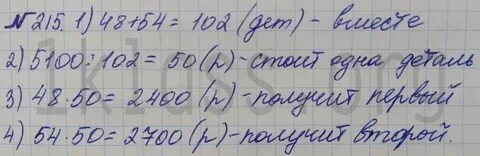 №215. 1) 48+54= 102 (дет) - вместе
2) 5100:102= 50 (р) - стоит одна деталь
3) 48·50= 2400 (р) - получит первый
4) 54·50= 2700 (р) - получит второй.
1klass.org